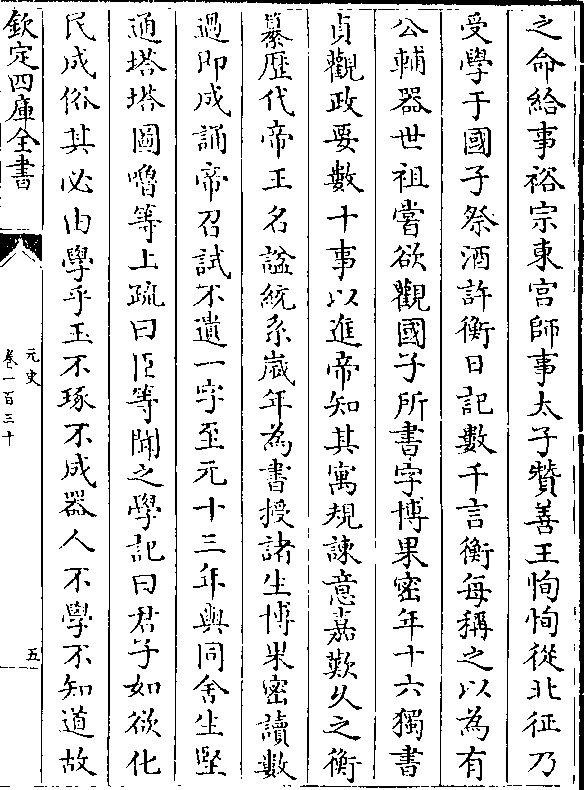 之命給事裕宗東宮師事太子贊善王恂恂從北征乃
受學于國子祭酒許衡日記數千言衡每稱之以為有
公輔器世祖嘗欲觀國子所書字博果密年十六獨書
貞觀政要數十事以進帝知其寓規諫意嘉歎久之衡
纂歷代帝王名諡統系嵗年為書授諸生博果密讀數
過即成誦帝召試不遺一字至元十三年與同舍生堅
通塔塔圖嚕等上疏曰臣等聞之學記曰君子如欲化
民成俗其必由學乎玉不琢不成器人不學不知道故
欽定四庫全書
元史
卷一百三十
五